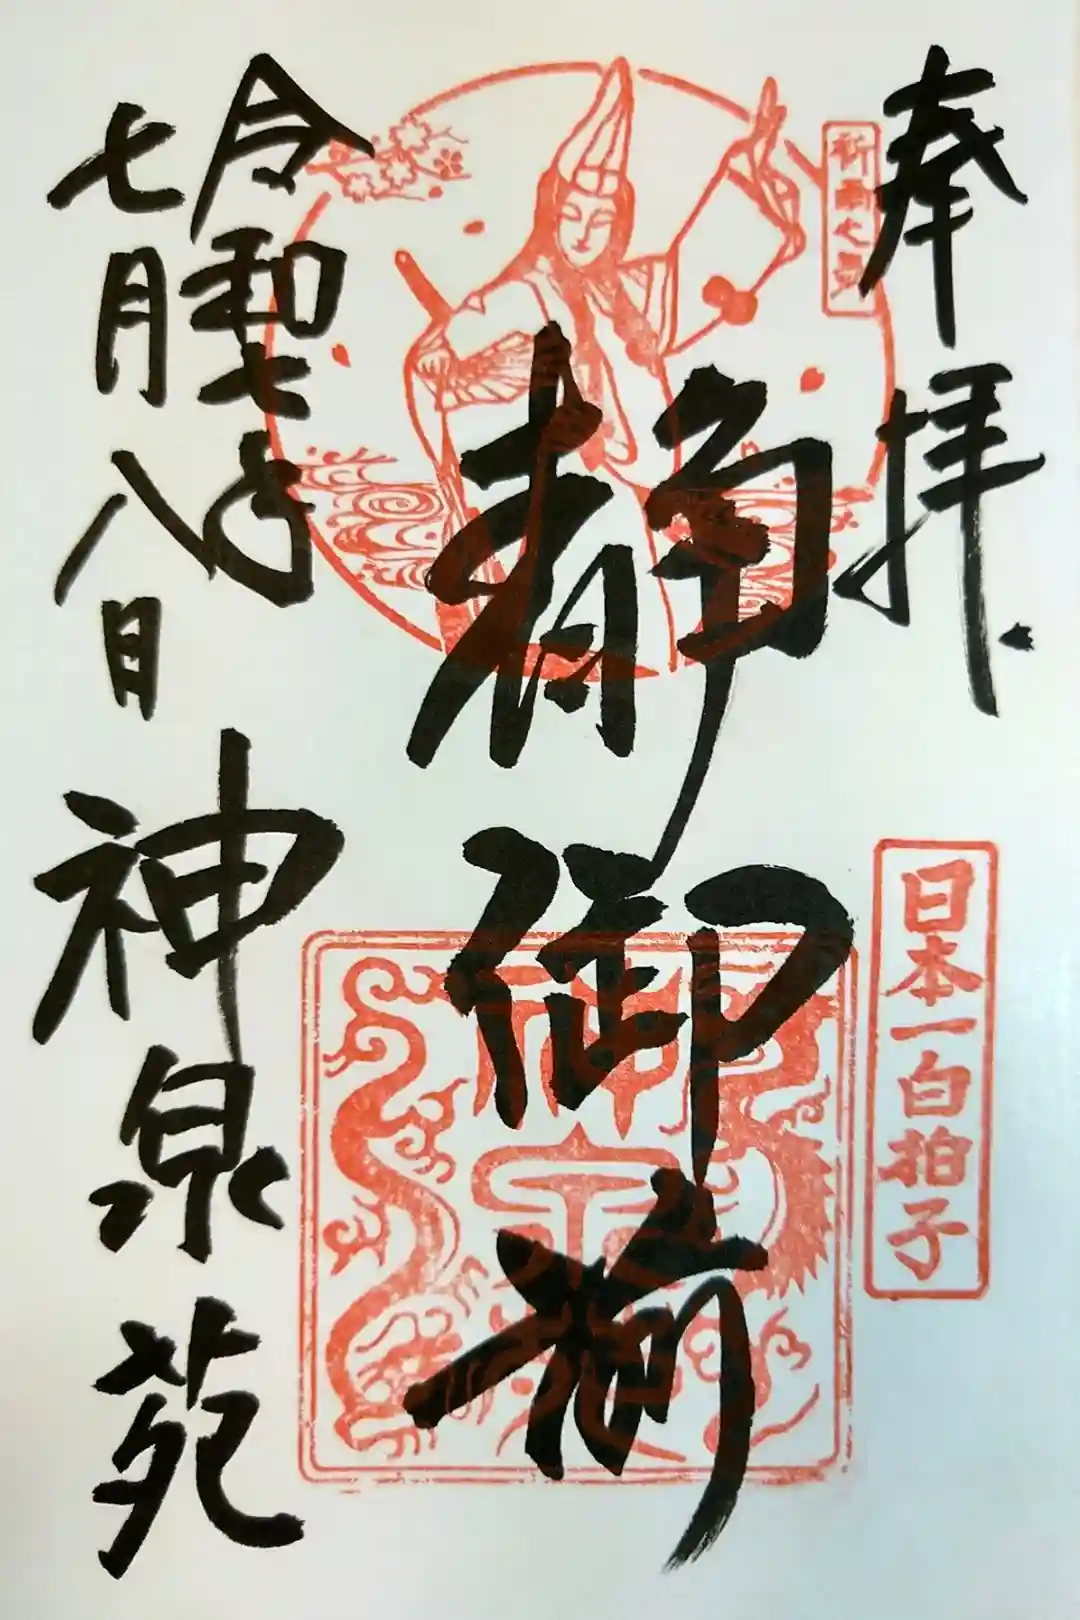 奉拝
祈雨之舞
日本一白拍子
静御前
令和七年
七月八日
神泉苑